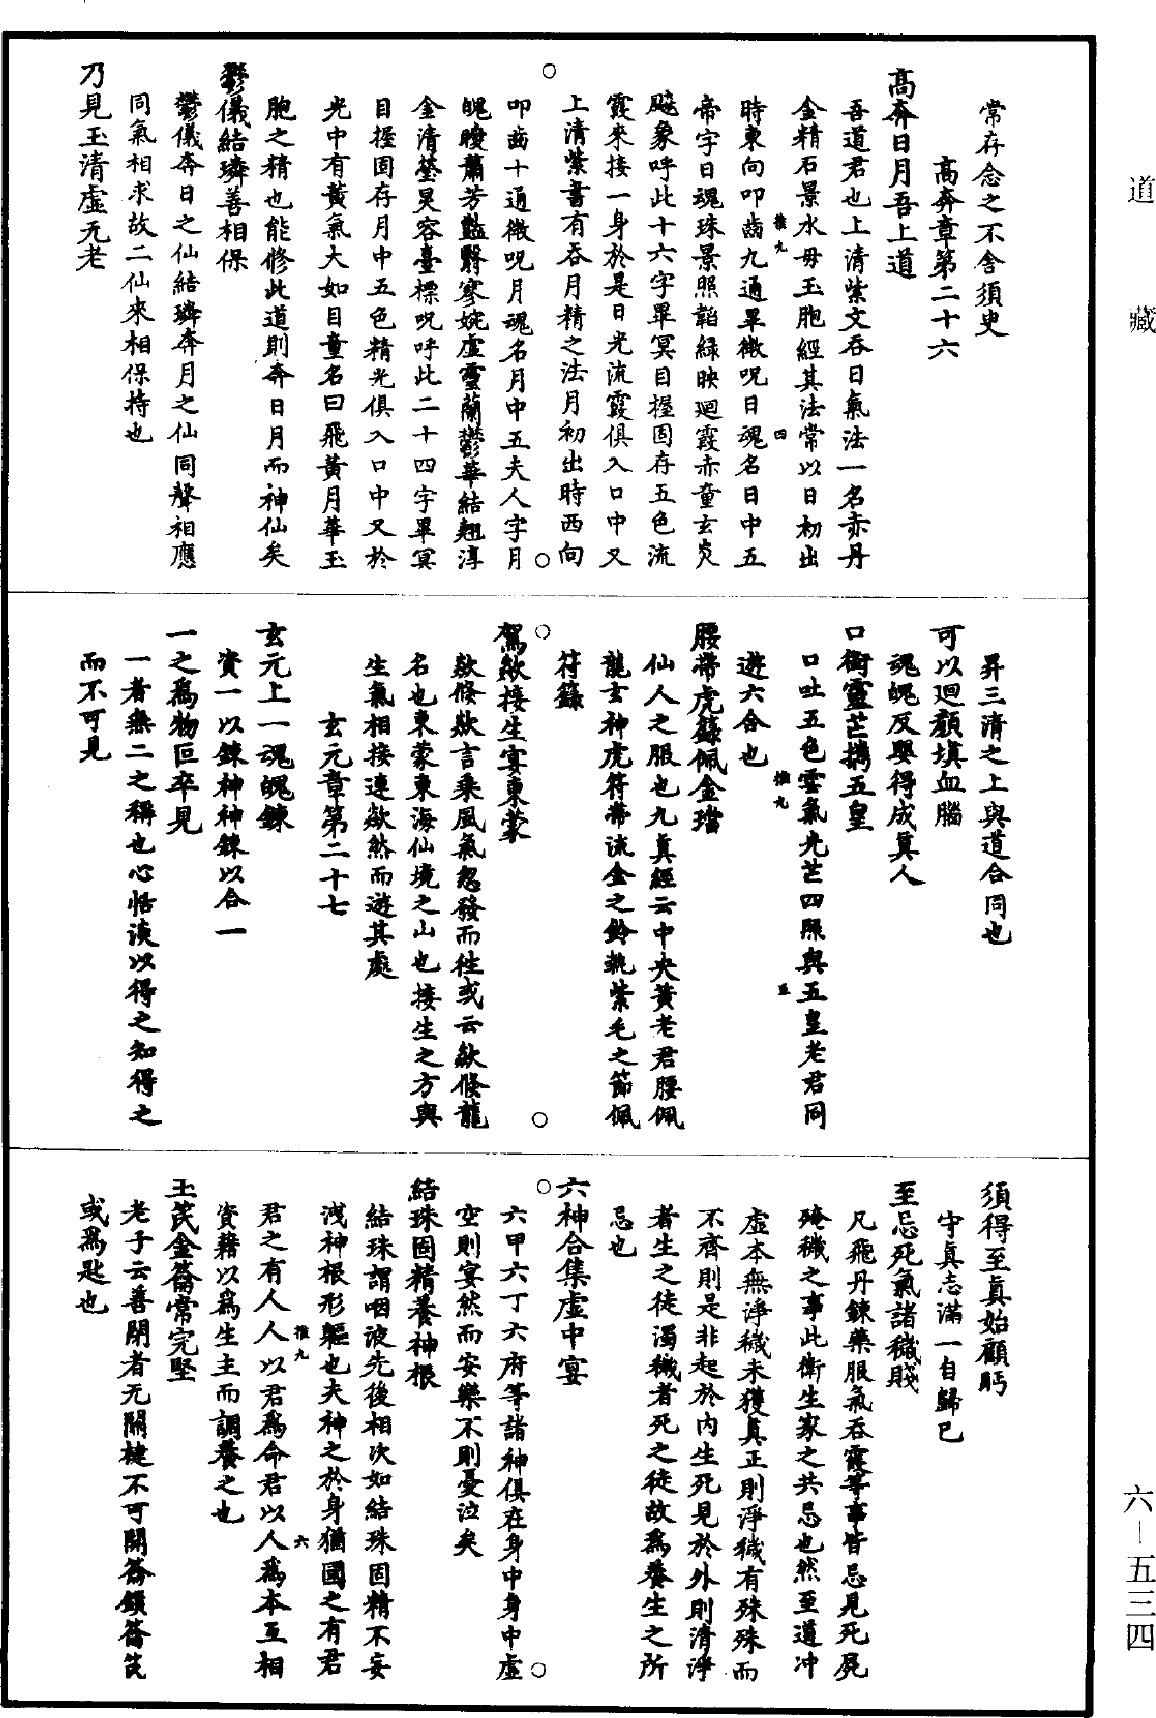 道藏
常存念之不舍須臾
高奔章第二十六
高奔日月吾上道
吾道君也上清紫文吞日氣法一名赤丹
金精石景水母玉胞經其法常以日初出
推九
四
時東向叩齒九通畢微呪日魂名日中五
帝字日魂珠景照韜綠映廻霞赤童玄炎
飇象呼此十六字畢冥目握固存五色流
霞來接一身於是日光流霞俱入口中又
上清紫書有吞月精之法月初出時西向
叩齒十通微呪月魂名月中五夫人字月
魄曖蕭芳豔翳寥婉虛靈蘭鬱華結翹淳
金清瑩炅容臺標呪呼此二十四字畢冥
目握固存月中五色精光俱入口中又於
光中有黃氣大如目童名曰飛黃月華玉
胞之精也能修此道則奔日月而神仙矣
鬱儀結璘善相保
鬱儀奔日之仙結璘奔月之仙同聲相應
同氣相求故二仙來相保持也
乃見玉清虛无老
昇三清之上與道合同也
可以廻顏填血腦
魂魄反嬰得成真人
口銜靈芒攜五皇
口吐五色雲氣光芒四照與五皇老君同
推九
五
遊六合也
腰帶虎籙佩金璫
仙人之服也九真經云中央黃老君腰佩
龍玄神虎符帶流金之鈴執紫毛之節佩
符籙
駕欻接生宴東蒙
欻倏欻言乘風氣忽發而往或云欻倏龍
名也東蒙東海仙境之山也接生之方與
生氣相接連欻然而遊其處
玄元章第二十七
玄元上一魂魄鍊
資一以鍊神神鍊以合一
一之為物叵卒見
一者無二之稱也心恬淡以得之知得之
而不可見
須得至真始顧眄
守真志滿一自歸己
至忌死氣諸穢賤
凡飛丹鍊藥服氣吞霞等事皆忌見死屍
殗穢之事此衛生家之共忌也然至道沖
虛本無淨穢未獲真正則淨穢有殊殊而
不齊則是非起於內生死見於外則清淨
者生之徒濁穢者死之徒故為養生之所
忌也
六神合集虛中宴
六甲六丁六府等諸神俱在身中身中虛
空則宴然而安樂不則憂泣矣
結珠固精養神根
結珠謂咽液先後相次如結珠固精不妄
洩神根形軀也夫神之於身猶國之有君
推九
六
君之有人人以君為命君以人為本互相
資藉以為生主而調養之也
玉䇦金籥常完堅
老子云善閉者无關揵不可開籥鎖籥䇦
或為匙也
六－五三四